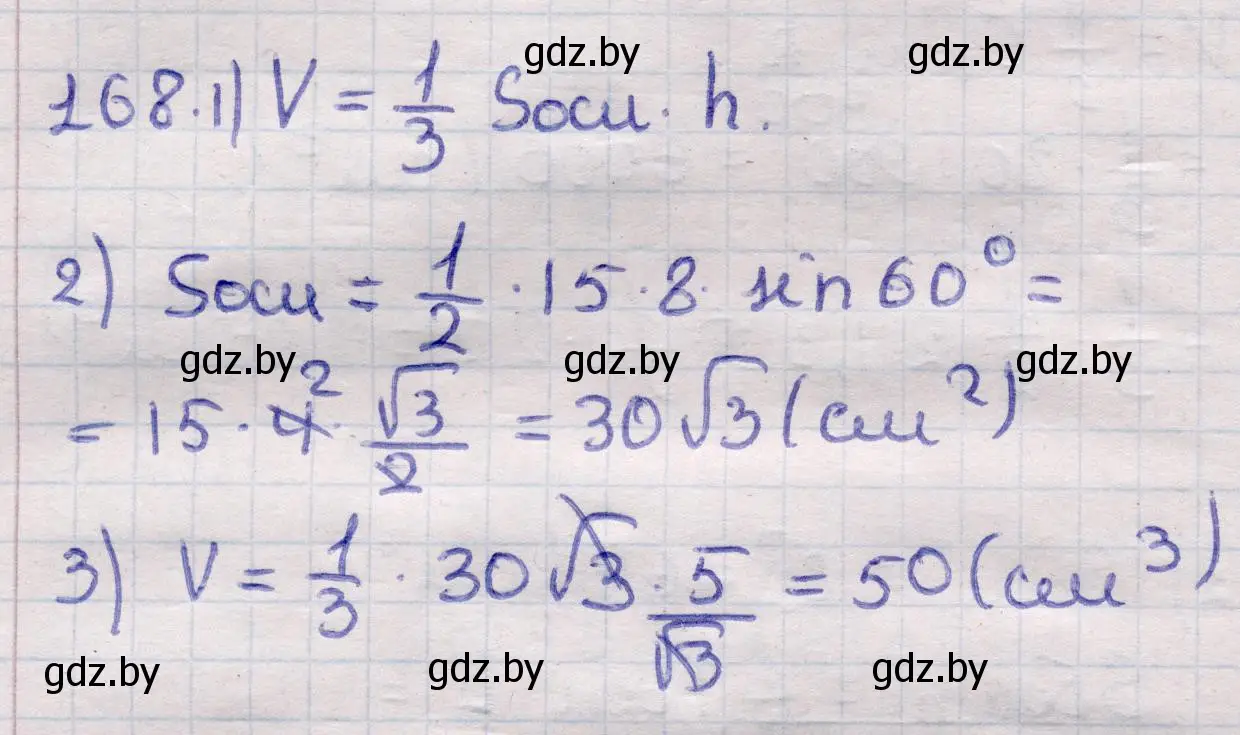 gdz.by gdz.by
168.1) V = 1/3 Sосн · h.
2) Sосн = 1/2 · 15 · 8 · sin 60° =
gdz.by gdz.by gdz.by
= 15 · 4² · √3/2 = 30√3 (см²)
3) V = 1/3 · 30√3 · 5/√3 = 50 (см³)
gdz.by gdz.by gdz.by